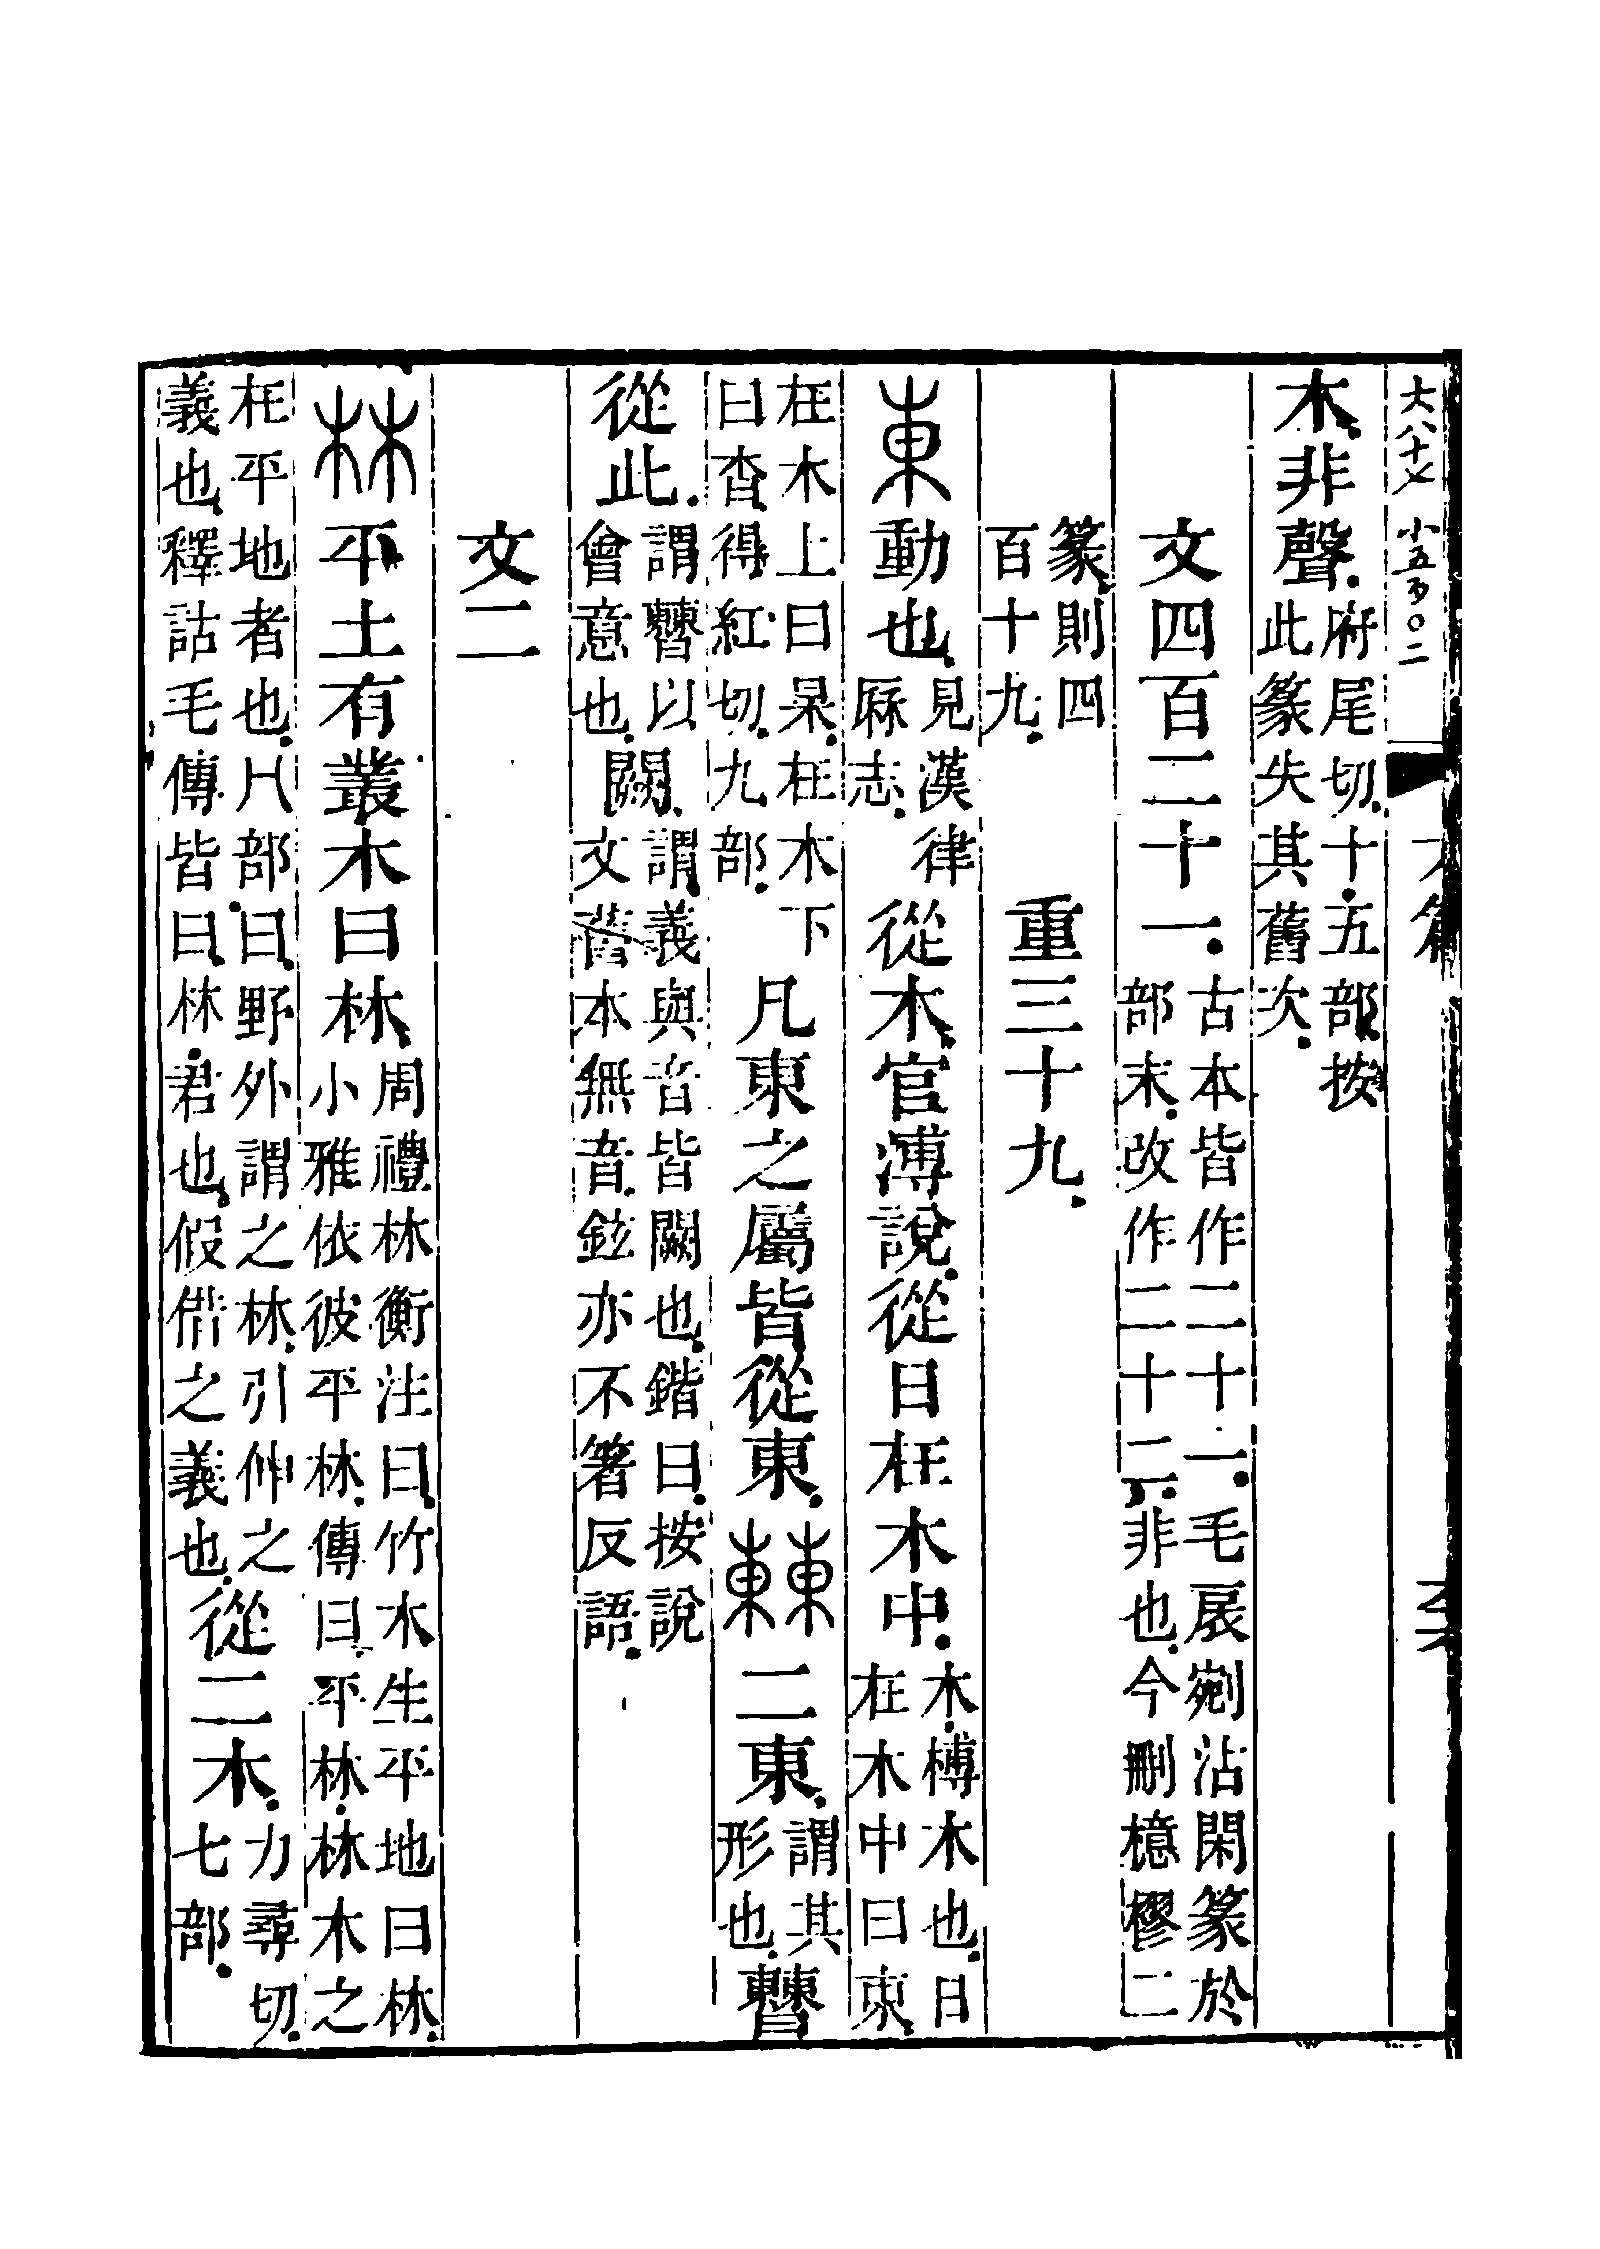 大八十七 小五百〇二
木非聲。府尾切。十五部。按此篆失其舊次。
文四百二十一。古本皆作二十一。毛扆剜沾閑篆於部末。改作二十二。非也。今刪檍樛二
篆、則四百十九。重三十九。
東動也。見漢律厤志。從木。官溥說。從日在木中。木、榑木也。日在木中曰東。
在木上曰杲。在木下曰杳。得紅切。九部。凡東之屬皆從東。𣗥二東。謂其形也。𣍘
從此。謂𣍘以會意也。闕。謂義與音皆闕也。鍇曰。按說文舊本無音。鉉亦不箸反語。
文二
林平土有叢木曰林。周禮林衡注曰。竹木生平地曰林。小雅依彼平林。傳曰。平林。林木之
在平地者也。冂部曰。野外謂之林。引伸之義也。釋詁毛傳皆曰。林。君也。假借之義也。從二木。力尋切。七部。